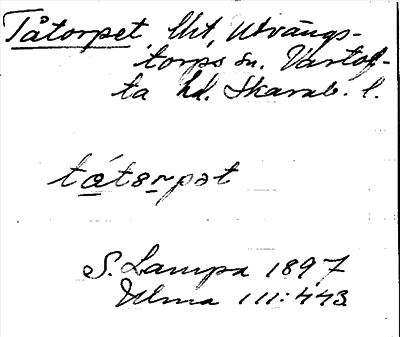 Tåtorpet, lht, Utvängs-
torps sn. Vartof-
ta hd. Skarab. l.
tátorpət
S. Lampa 1897
Ulma 111:443